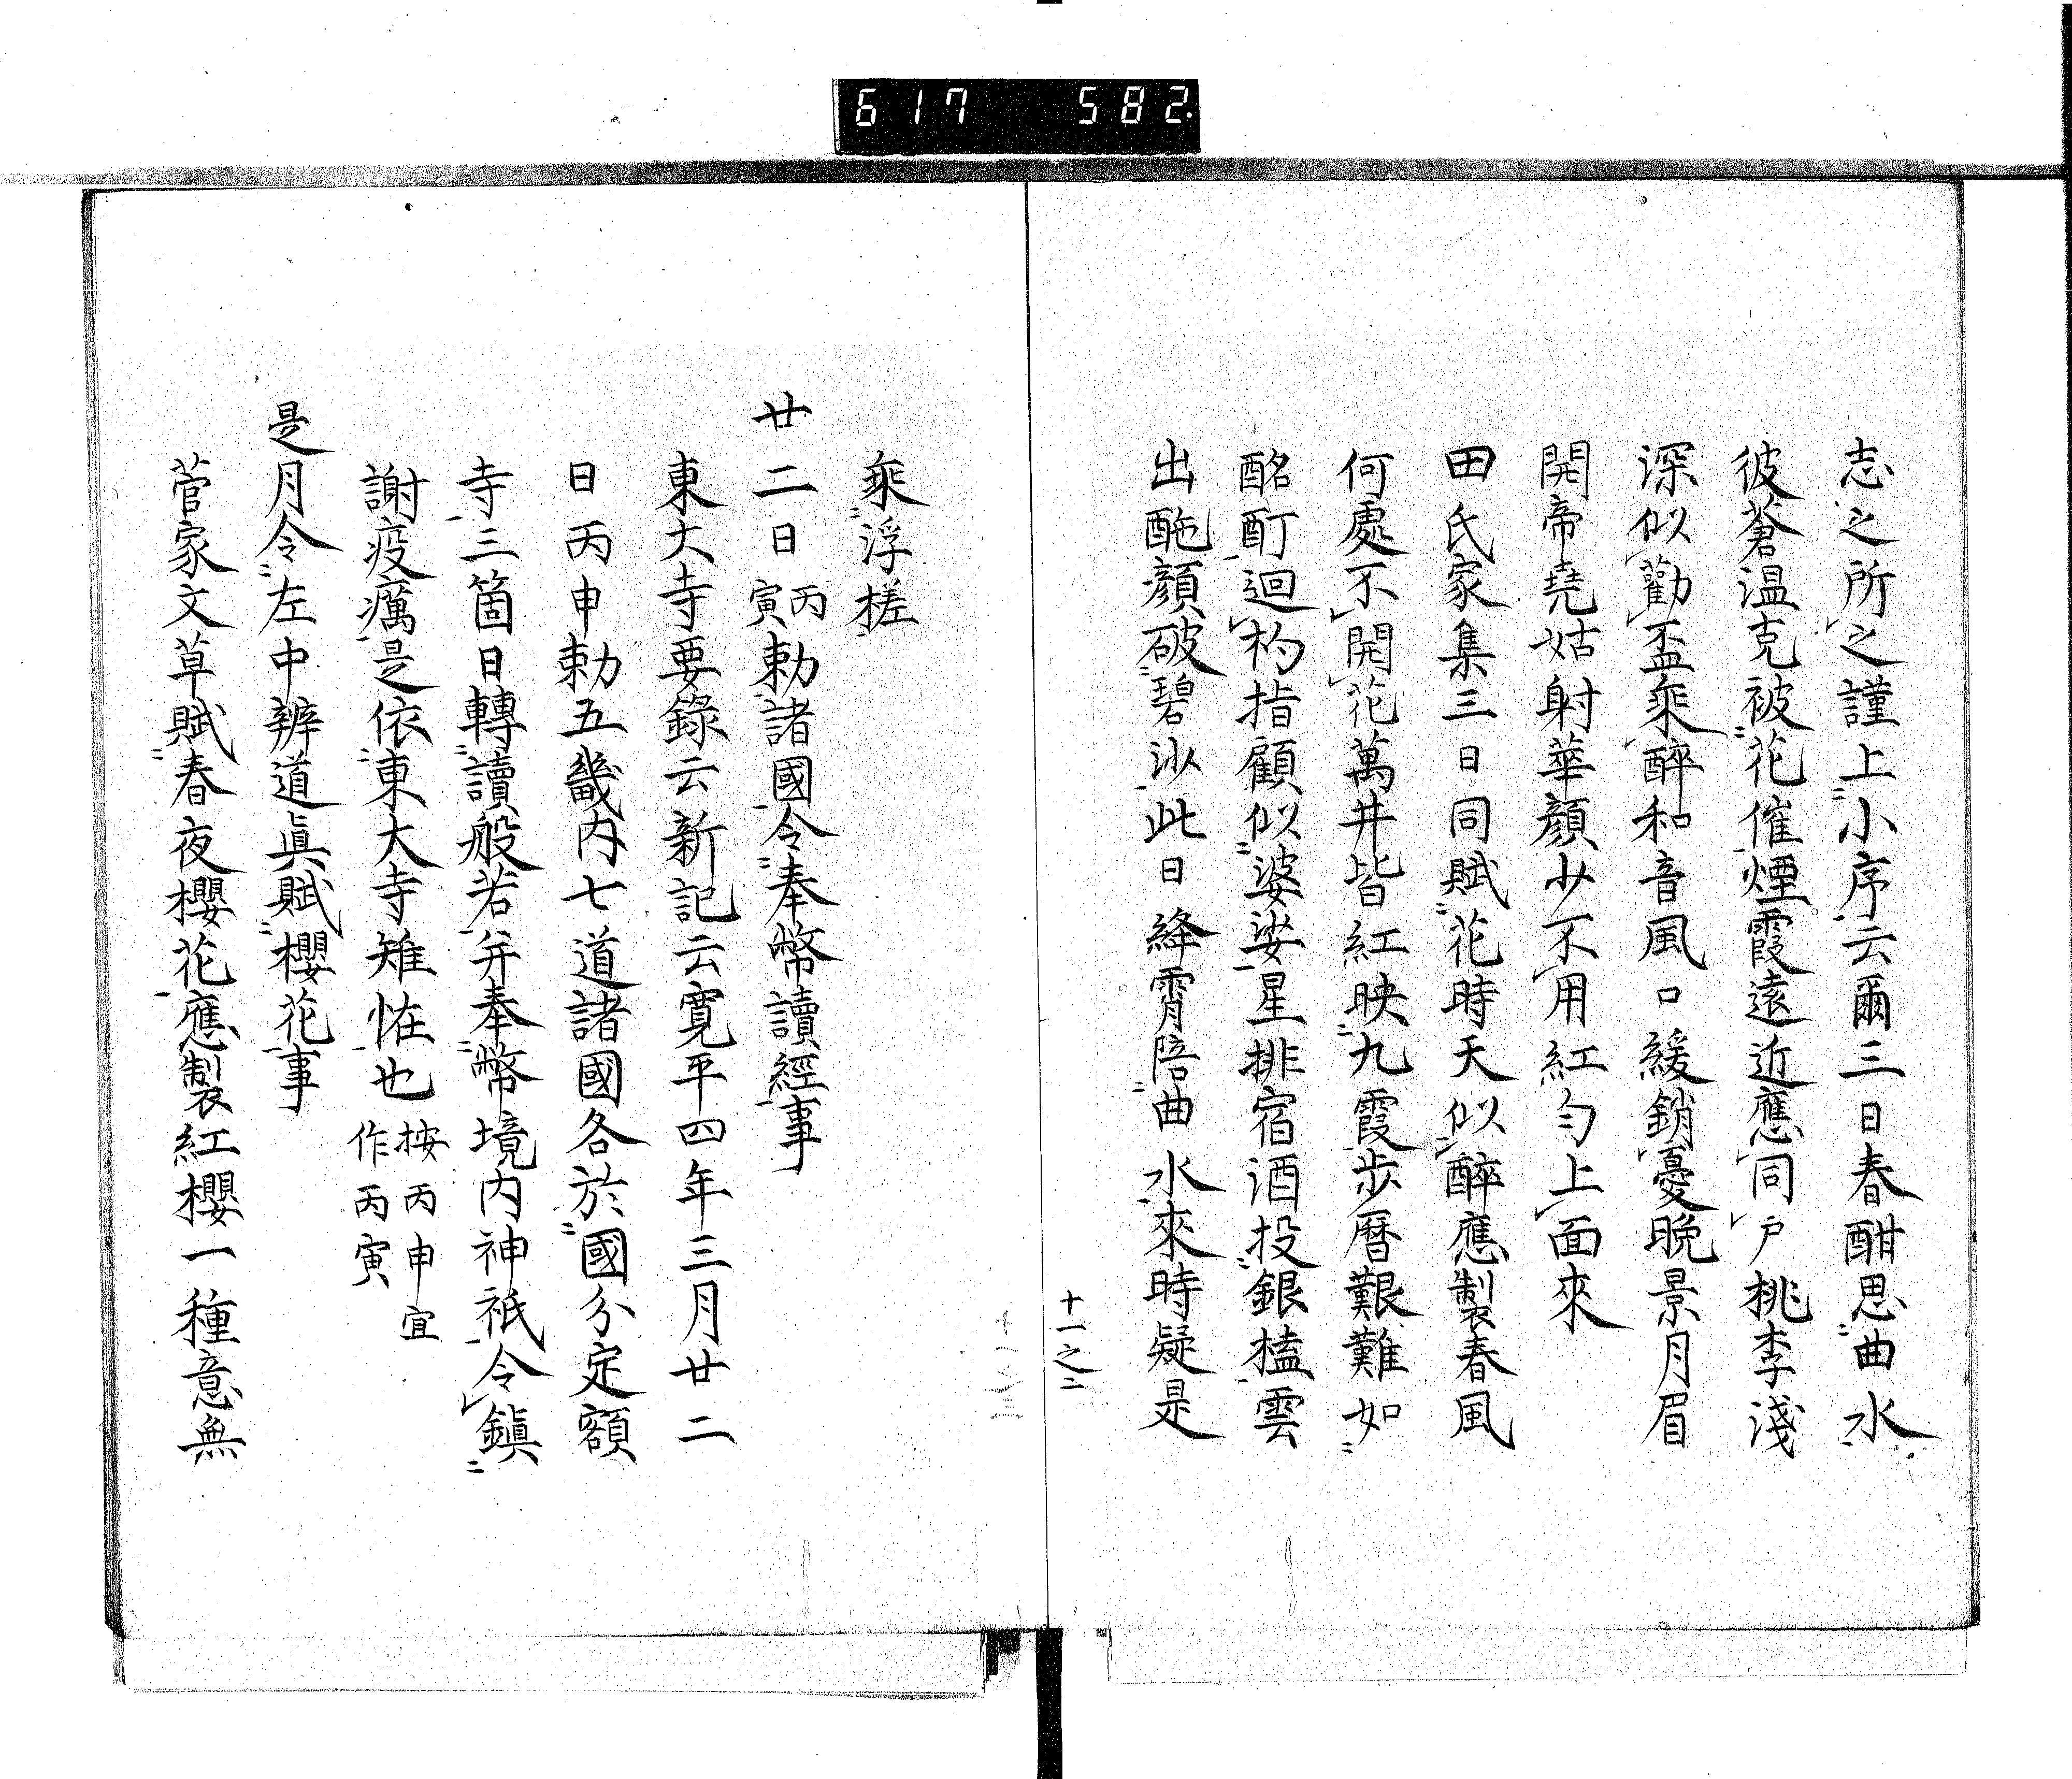 617 582
志之所之謹上小序云爾三日春酣思曲水
彼蒼温克被花催煙霞遠近應同戸桃李淺
深似勸盃乘醉和音風口緩銷憂晩景月眉
開帝堯姑射華顔少不用紅勻上面來
田氏家集三日同賦花時天似醉應製春風
何處不開花萬井皆紅映九霞步曆艱難如
酩酊迴杓指顧似婆娑星排宿酒投銀榼雲
出酏顔破碧沙此日絳霄陪曲水來時疑是
十一之二
乘浮槎
廿二日丙寅勅諸國令奉幣讀經事
東大寺要錄云新記云寬平四年三月廿二
日丙申勅五畿内七道諸國各於國分定額
寺三箇日轉讀般若并奉幣境内神祇令鎭
謝疫癘是依東大寺雉恠也按丙申宜作丙寅
是月令左中辨道眞賦櫻花事
菅家文草賦春夜櫻花應製紅櫻一種意無